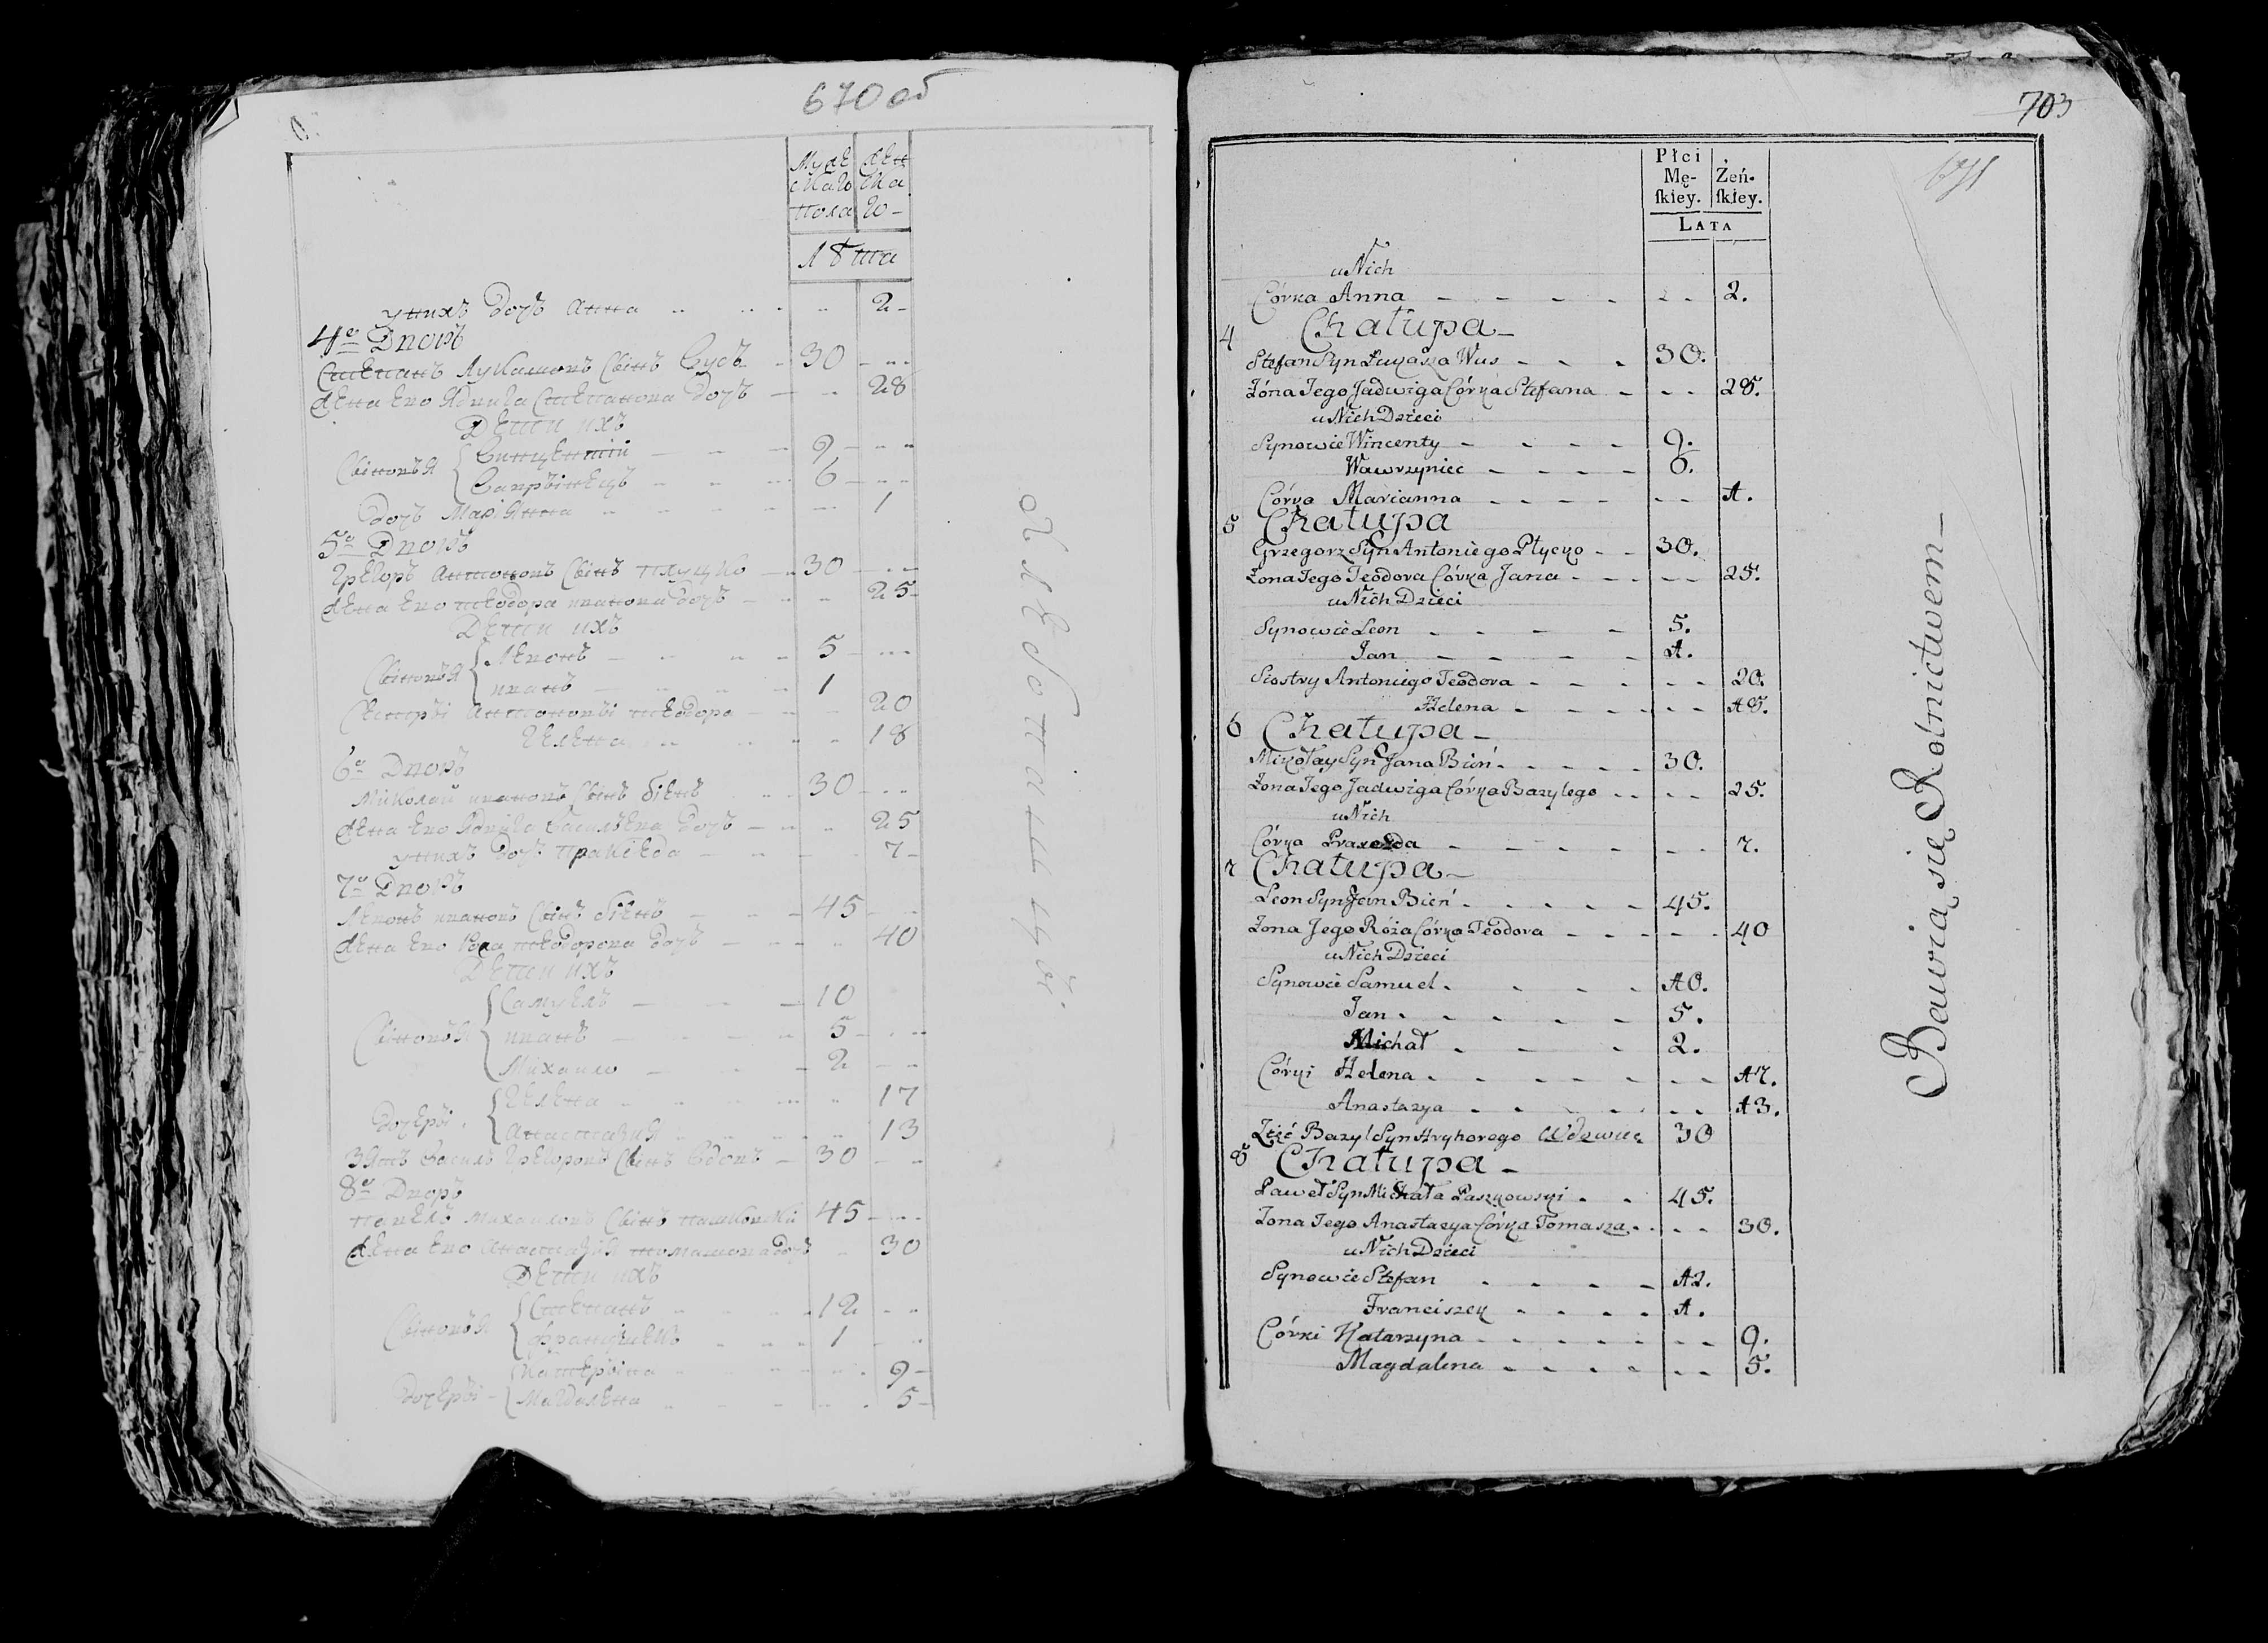 670 об
Муже женъ
скаго ска
пола го -
лѣта
у нихъ дочь Анна 2 -
4й Дворъ
Степанъ Лукашовъ сынъ Вусъ 30
Жена его Ядвига Степанова дочь 28
Дети ихъ
Сыновья Винцентий 9
Вавръинецъ 6
Дочь Мариянна 1
5й Дворъ
Грегоръ Антоновъ сынъ Плуцко 30
Жена его Теодора Иванова дочь 25
Дети ихъ
Сыновья Левонъ 5
Иванъ 1
Сестры Антоновы Теодора 20
Гелена 18
6й Дворъ
Миколай Ивановъ сынъ Бѣнь 30
Жена его Ядвига Васильева дочь 25
у нихъ дочь Праксѣда 7 -
7й Дворъ
Левонъ Ивановъ сынъ Бѣнь 45
Жена его Роза Теодорова дочь 40
Дети ихъ
Сыновья Самуелъ 10
Иванъ 5
Михаило 2
Дочеры Гелена 17
Анастазия 13
Зять Василь Грегоровъ сынъ Вдовъ 30
8й Дворъ
Павелъ Михаиловъ сынъ Пашковски 45
Жена его Анастазия Томашова дочь 30
Дети ихъ
Сыновья Степанъ 12
Францишекъ 1
Дочеры Катерына 9 -
Магдалена 5 -
703
671
Płci
Mę- Żeń-
ſkiey. ſkiey.
LATA
u Nich
Córka Anna 2.
4 Chałupa
Stefan Syn Łukasza Wus 30.
Żóna Jego Jadwiga Córka Stefana 28.
u Nich Dzieci
Synowie Wincenty 9.
Wawrzyniec 6.
Córka Marianna 1.
5 Chałupa
Grzegorz Syn Antoniego Płycko 30.
Żona Jego Teodora Córka Jana 25.
u Nich Dzieci
Synowie Leon 5.
Jan 1.
Siostry Antoniego Teodora 20.
Helena 18.
6 Chałupa
Mikołay Syn Jana Bień 30.
Żona Jego Jadwiga Córka Bazylego 25.
u Nich
Córka Praxeda 7.
7 Chałupa
Leon Syn Jan Bień 45.
Żona Jego Róża Córka Teodora 40
u Nich Dzieci
Synowie Samuel 10.
Jan 5.
Michał 2.
Córki Helena 17.
Anastazya 13.
Zięć Bazyl Syn Hryhorego Wdowiec 30
8 Chałupa
Paweł Syn Michała Paszkowski 45.
Żona Jego Anastazya Córka Tomasza 30.
u Nich Dzieci
Synowie Stefan 12.
Franciszek 1.
Córki Katarzyna 9.
Magdalena 5.
Bawią się Rolnictwem